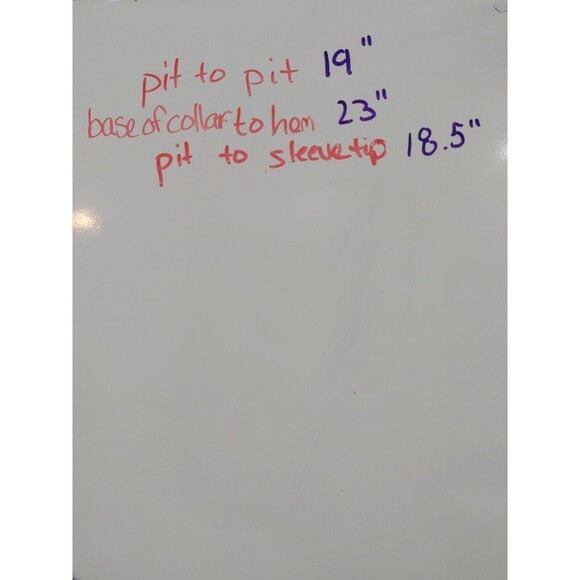 pit to pit 19"
base of collar to hem 23"
pit to sleeve tip 18.5"